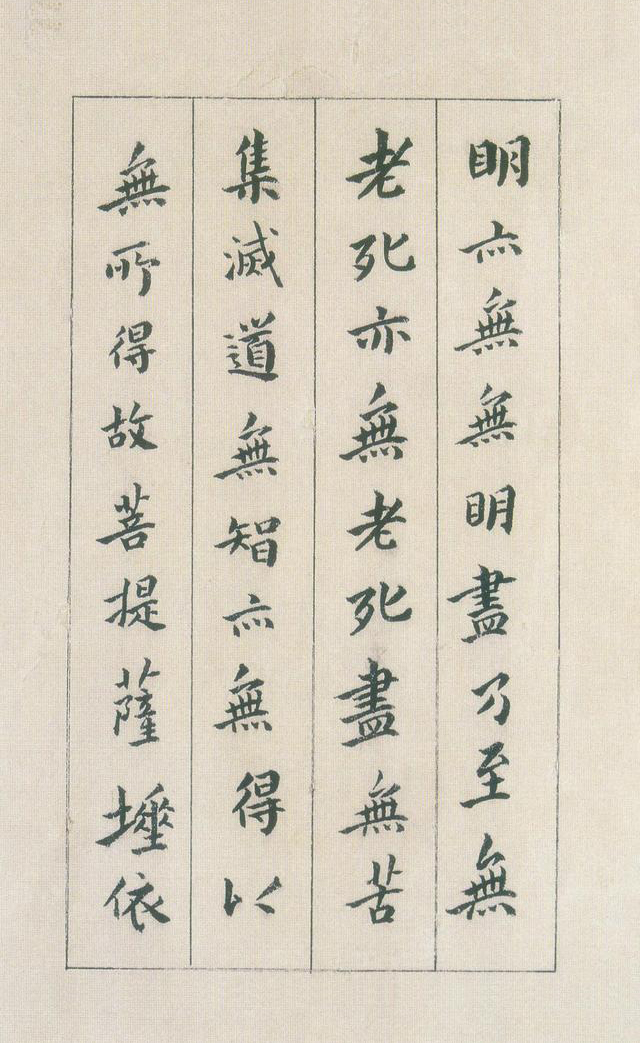 明亦無無明盡乃至無
老死亦無老死盡無苦
集滅道無智亦無得以
無所得故菩提薩埵依